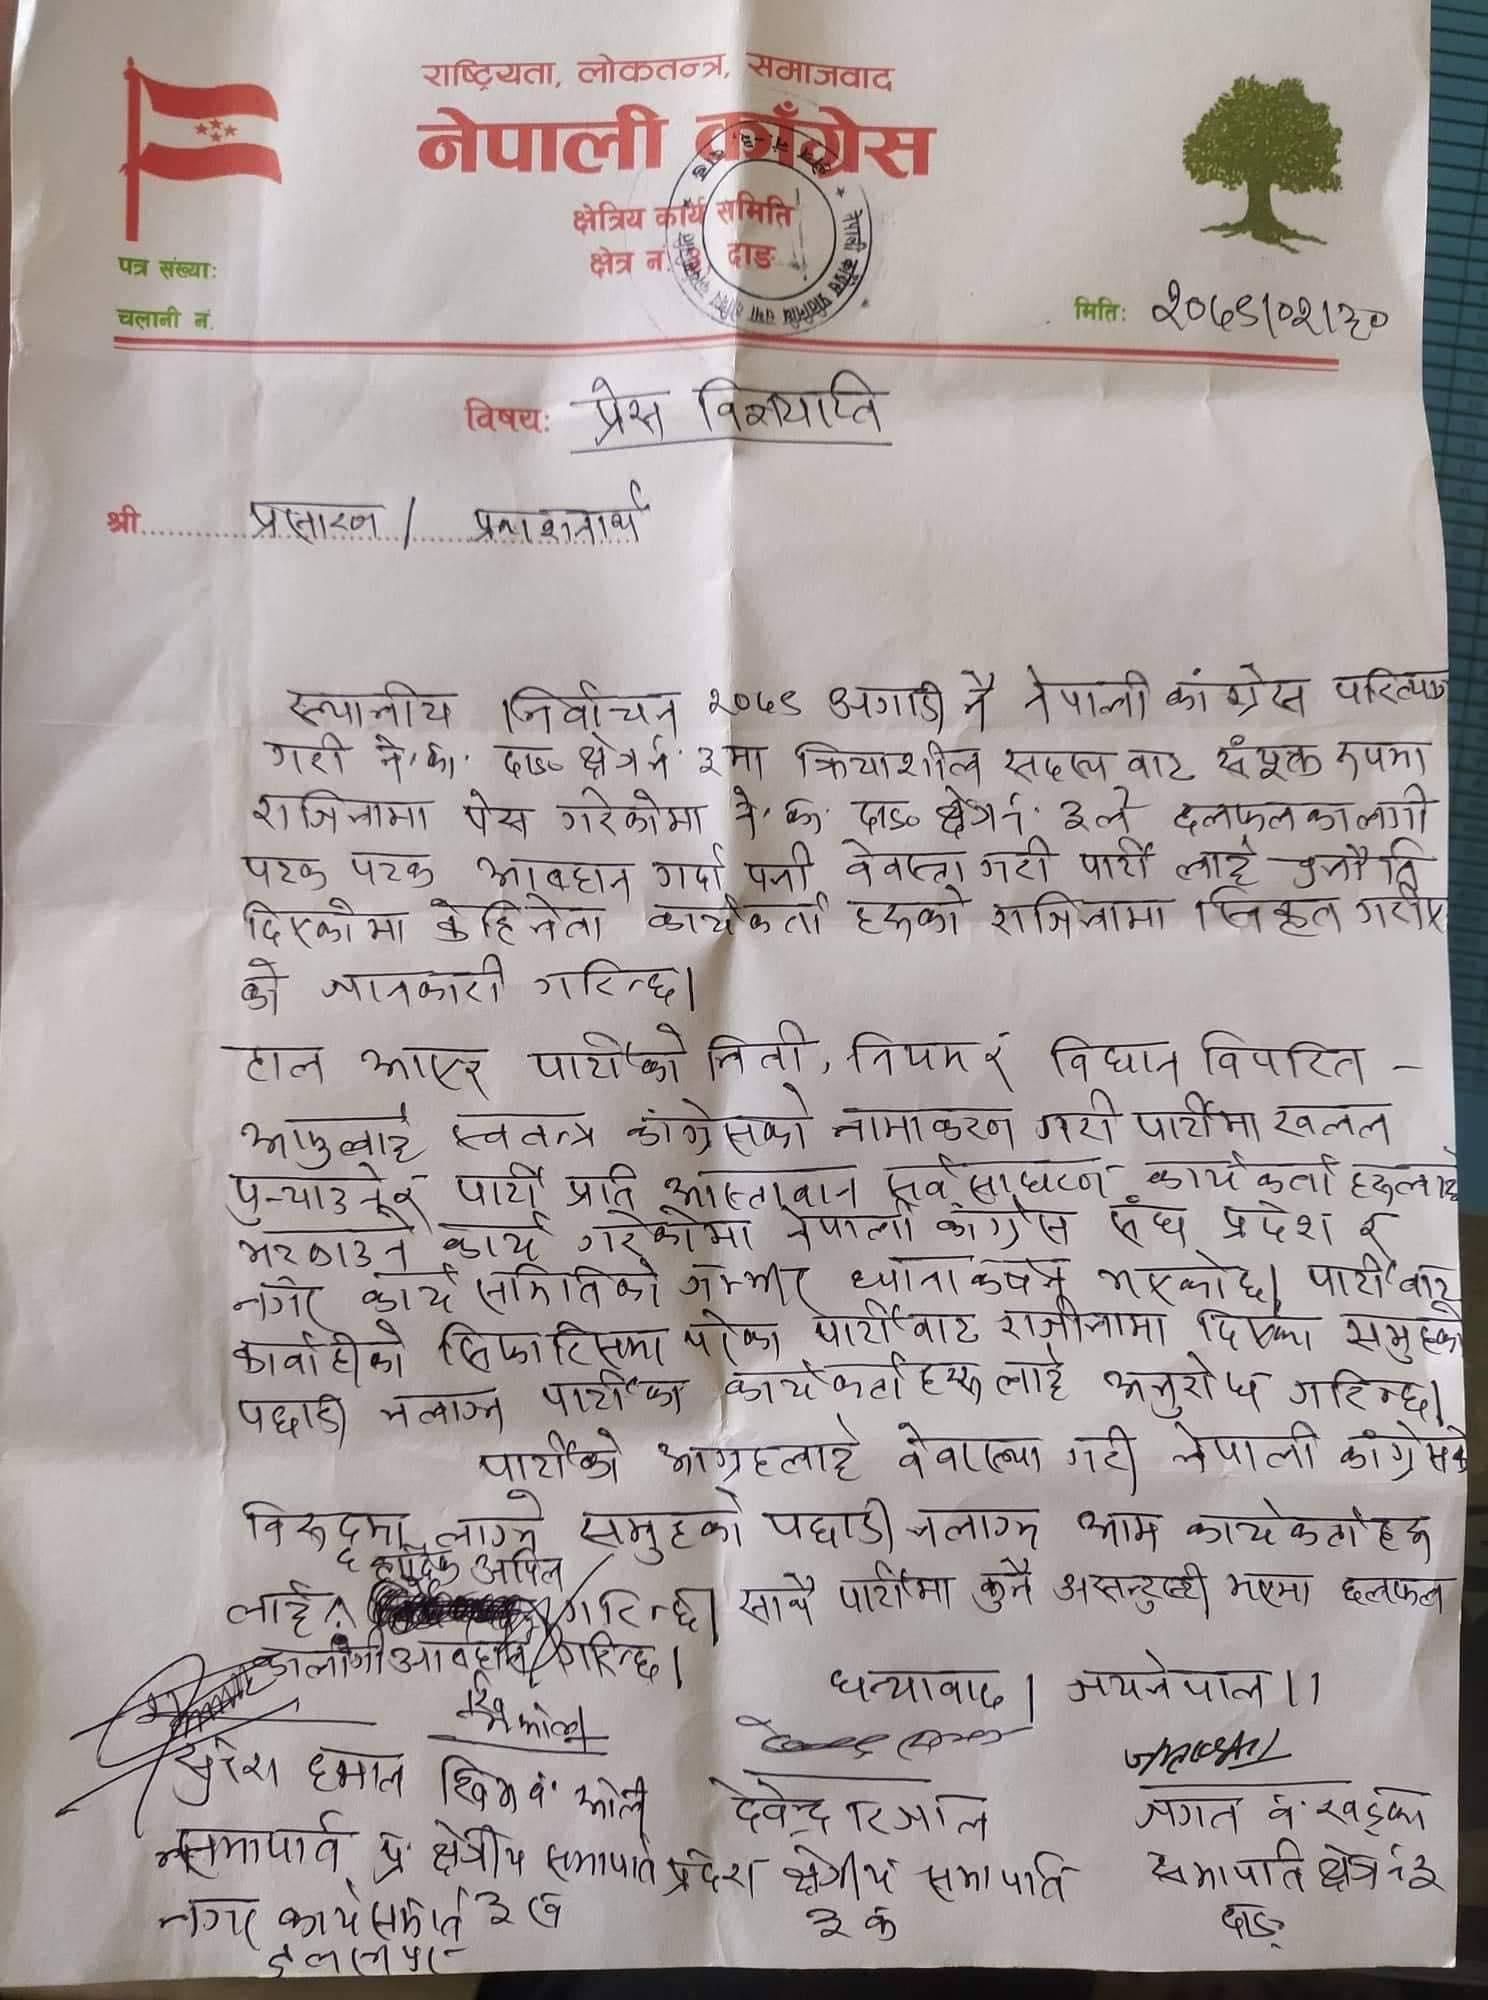 राष्ट्रियता, लोकतन्त्र, समाजवाद
नेपाली काँग्रेस
क्षेत्रिय कार्य समिति
क्षेत्र नं. 3, दाङ
पत्र संख्याः
चलानी नं.
मितिः २०७९।०२।३०
विषयः प्रेस विज्ञयाप्ति
श्री.......... प्रसारण / प्रकाशनार्थ
स्थानीय निर्वाचन २०७९ अगाडी नै नेपाली कांग्रेस परित्याग
गरी ने.का. दाङ क्षेत्र नं. ३मा क्रियाशील सदस्य वाट संयुक्त रुपमा
राजिनामा पेस गरेकोमा ने.का. दाङ क्षेत्र नं. ३ले छलफलकालागी
पटक पटक आवहान गर्दा पनी वेवास्ता गरी पार्टी लाई चुनौति
दिएकोमा केहि नेता कार्यकर्ता हरुको राजिनामा स्विकृत गरीए
को जानकारी गरिन्छ।
हाल आएर पार्टीको निती, नियम र विधान विपरित –
आफुलाई स्वतन्त्र कांग्रेसको नामाकरण गरी पार्टीमा खलल
पुऱ्याउने र पार्टी प्रति आस्तावान सर्वसाधरण कार्यकर्ता हरुलाई
भड्काउने कार्य गरेकोमा नेपाली कांग्रेस संघ प्रदेश र
नगर कार्य समितिको गम्भिर ध्यानाकर्षन भएकोछ। पार्टी वाट
कार्वाहीको सिफारिसमा परेका पार्टीवाट राजीनामा दिएका समुहको
पछाडी नलाग्न पार्टीका कार्यकर्ता हरु लाई अनुरोध गरिन्छ।
पार्टीको आग्रहलाई वेवास्था गरी नेपाली कांग्रेसको
विरुद्धमा लाग्ने समुहको पछाडी नलाग्न आम कार्यकर्ता हरु
हार्दिक अपिल
लाई गरिन्छ। साथै पार्टीमा कुनै असन्तुष्टी भएमा छलफल
कालागी आवहान गरिन्छ।
धन्यावाद। जयनेपाल।।
सुरेश हमाल खिम व. ओली देवेन्द्र रिजाल जगत व. खड्का
सभापति प्र. क्षेत्रीय सभापति प्रदेश क्षेत्रीय सभापति सभापति क्षेत्र नं ३
नगर कार्य समिति ३ ख ३ क दाङ
तुलसीपुर